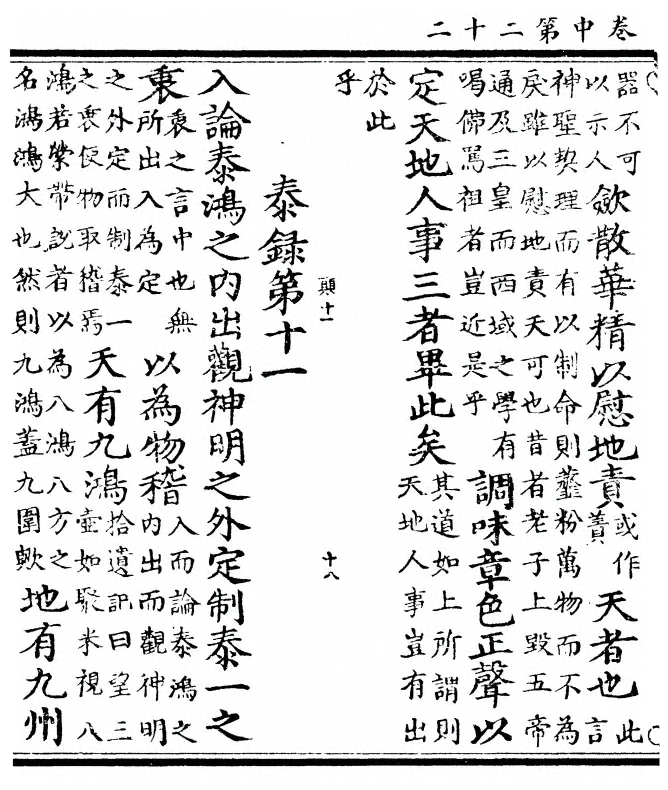 卷中第二十二
器不可
以示人
斂散華精以慰地責
或作
䔳
天者也
此
言
神聖契理而有以制命則虀粉萬物而不為
戾雖以慰地責天可也昔者老子上毀五帝
通及三皇而西域之學有
喝佛罵祖者豈近是乎
調味章色正聲以
定天地人事三者畢此矣
其道如上所謂則
天地人事豈有出
於此
乎
顛十一
十八
泰録第十一
入論泰鴻之内出觀神明之外定制泰一之
衷
衷之言中也無
所出入為定
以為物稽
入而論泰鴻之
内出而觀神明
之外定而制泰一
之衷便物取稽焉
天有九鴻
拾遺記曰望三
壺如聚米視八
鴻若縈帶説者以為八鴻八方之
名鴻鴻大也然則九鴻蓋九圍歟
地有九州